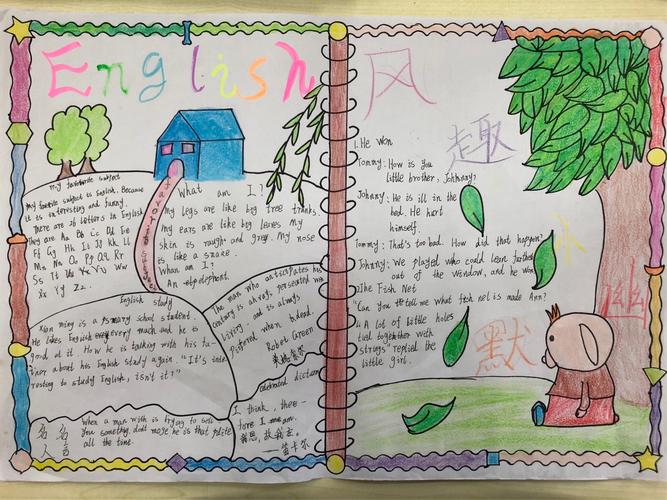 English
My favourite subject
My favorite subject is English. Because
it is interesting and funny.
There are 26 letters in English
They are Aa Bb Cc Dd Ee
Ff Gg Hh Ii Jj Kk Ll
Mm Nn Oo Pp Qq Rr
Ss Tt Uu Vv Ww
Xx Yy Zz.
What am I?
My legs are like big tree trunks.
My ears are like big leaves My
skin is rough and grey. My nose
is like a snake.
Whan am I?
An
English study
Xiao ming is a school student.
He likes English every much and he is
good at it. Now he is talking with his fa-
about his English study again. "It's inte-
resting to study English, isn't it?"
The man who anticipates his
century is always persecuted
living, and is always
when dead.
Robet Green
dictum
I think, there-
fore I am.
我思,故我在。
——笛卡尔
名人
名言
When a man is trying to sell
you something, don't he is that polite
all the time.
风趣
小
幽默
1. He Won
Tommy: How is you
little brother, Johnny?
Johnny: He is ill in the
bed. He hurt
himself.
Tommy: That's too bad. How did that happen?
Johnny: We played who could lean farthest
out of the window, and he won.
2. The Fish Net
"Can you tell me what fish net is made Ann?
"A lot of little holes
tied together with
strings" the
little girl.